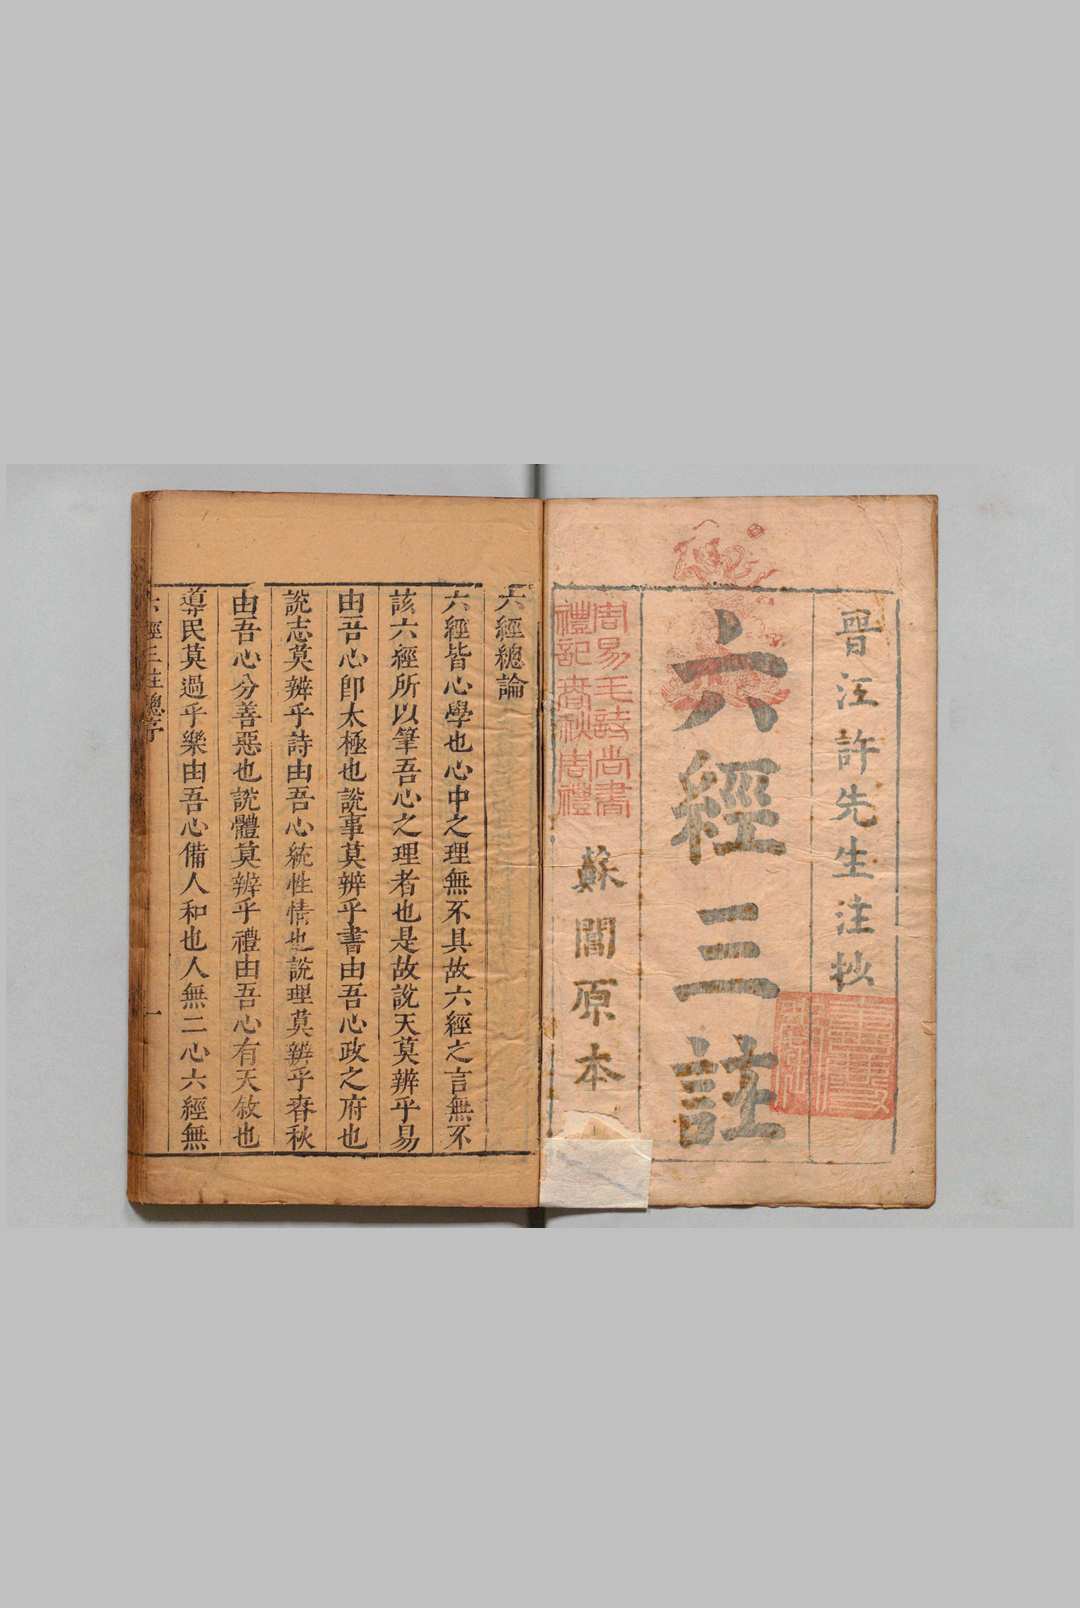 晉江許先生注抄
六經三註
周易毛詩尚書
禮記春秋周禮
蘇閶原本
六經總論
六經皆心學也心中之理無不具故六經之言無不
該六經所以筆吾心之理者也是故說天莫辨乎易
由吾心卽太極也說事莫辨乎書由吾心政之府也
說志莫辨乎詩由吾心統性情也說理莫辨乎春秋
由吾心分善惡也說體莫辨乎禮由吾心有天敘也
導民莫過乎樂由吾心備人和也人無二心六經無
六經三註總序 一